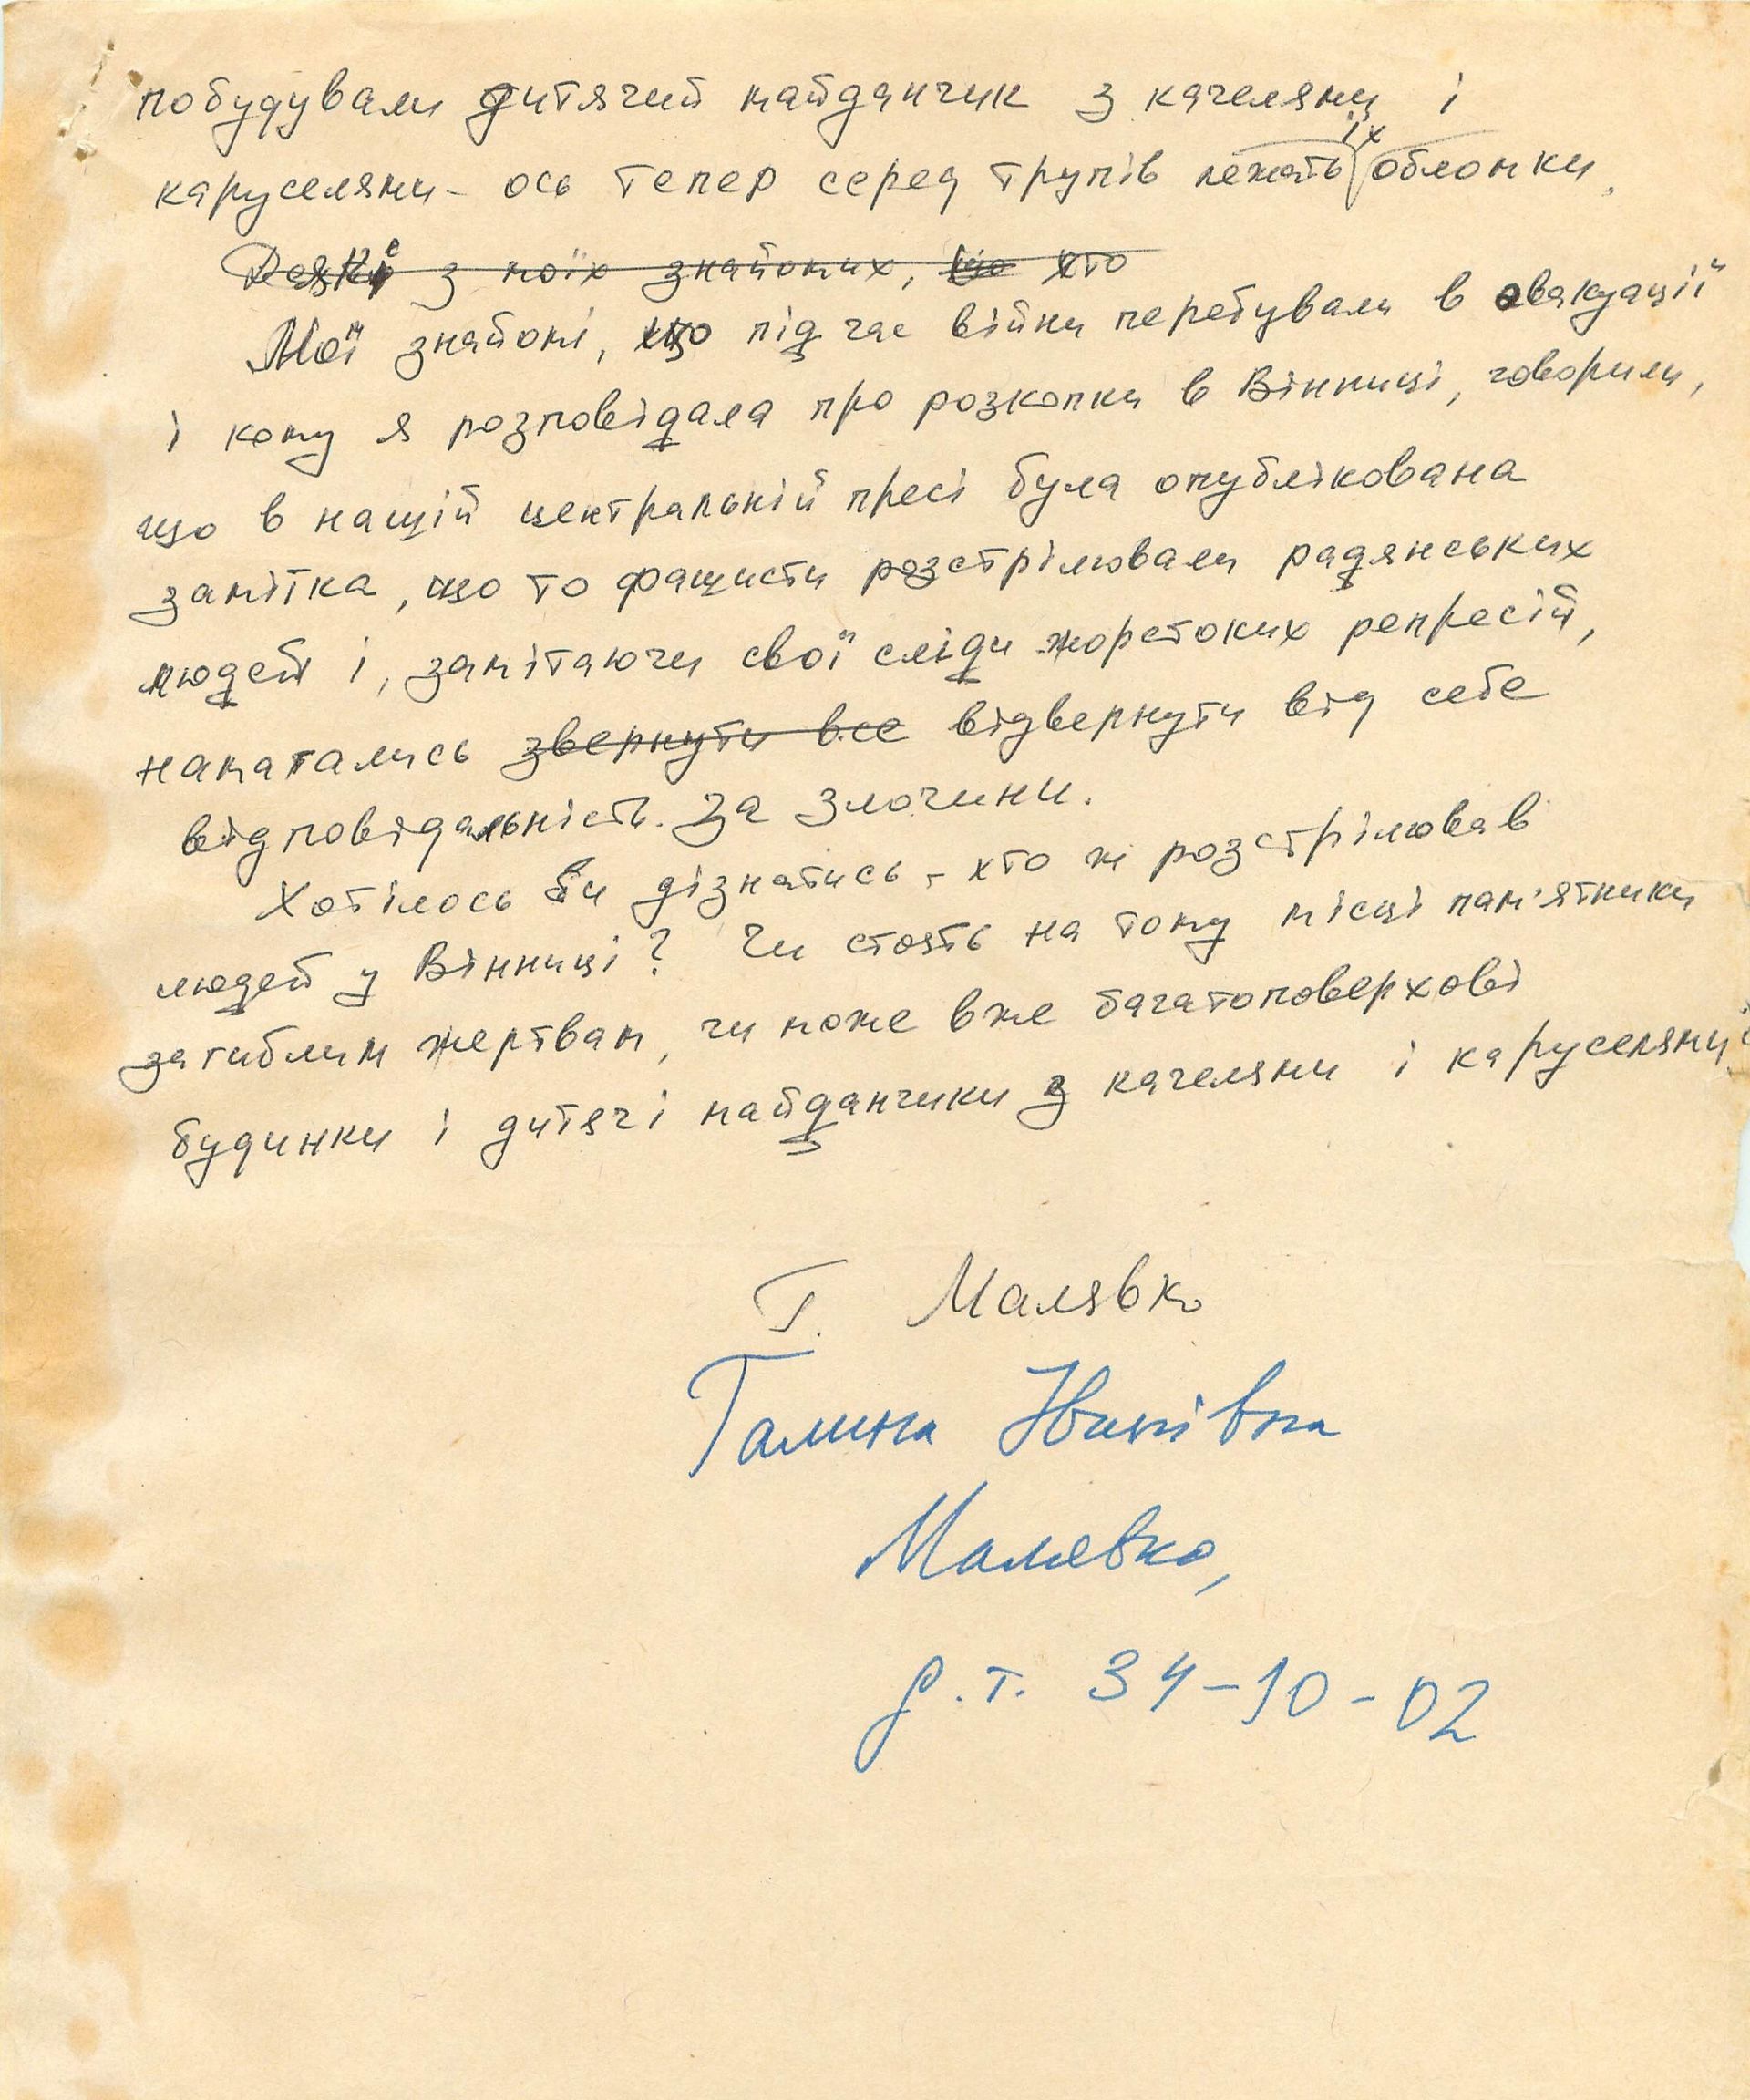 побудували дитячий майданчик з качелями і
каруселями – ось тепер серед трупів лежать їх обломки.
Деякі з моїх знайомих, що хто
Мої знайомі, що під час війни перебували в евакуації
і кому я розповідала про розкопки в Вінниці, говорили,
що в нашій центральній пресі була опублікована
замітка, що то фашисти розстрілювали радянських
людей і, замітаючи свої сліди жорстоких репресій,
намагались звернути все відвернути від себе
відповідальність за злочини.
Хотілось би дізнатись – хто ж розстрілював
людей у Вінниці? Чи стоять на тому місці пам'ятники
загиблим жертвам, чи може вже багатоповерхові
будинки і дитячі майданчики з качелями і каруселями?
Г. Малявко
Галина Іванівна
Малявко,
д.т. 34-10-02